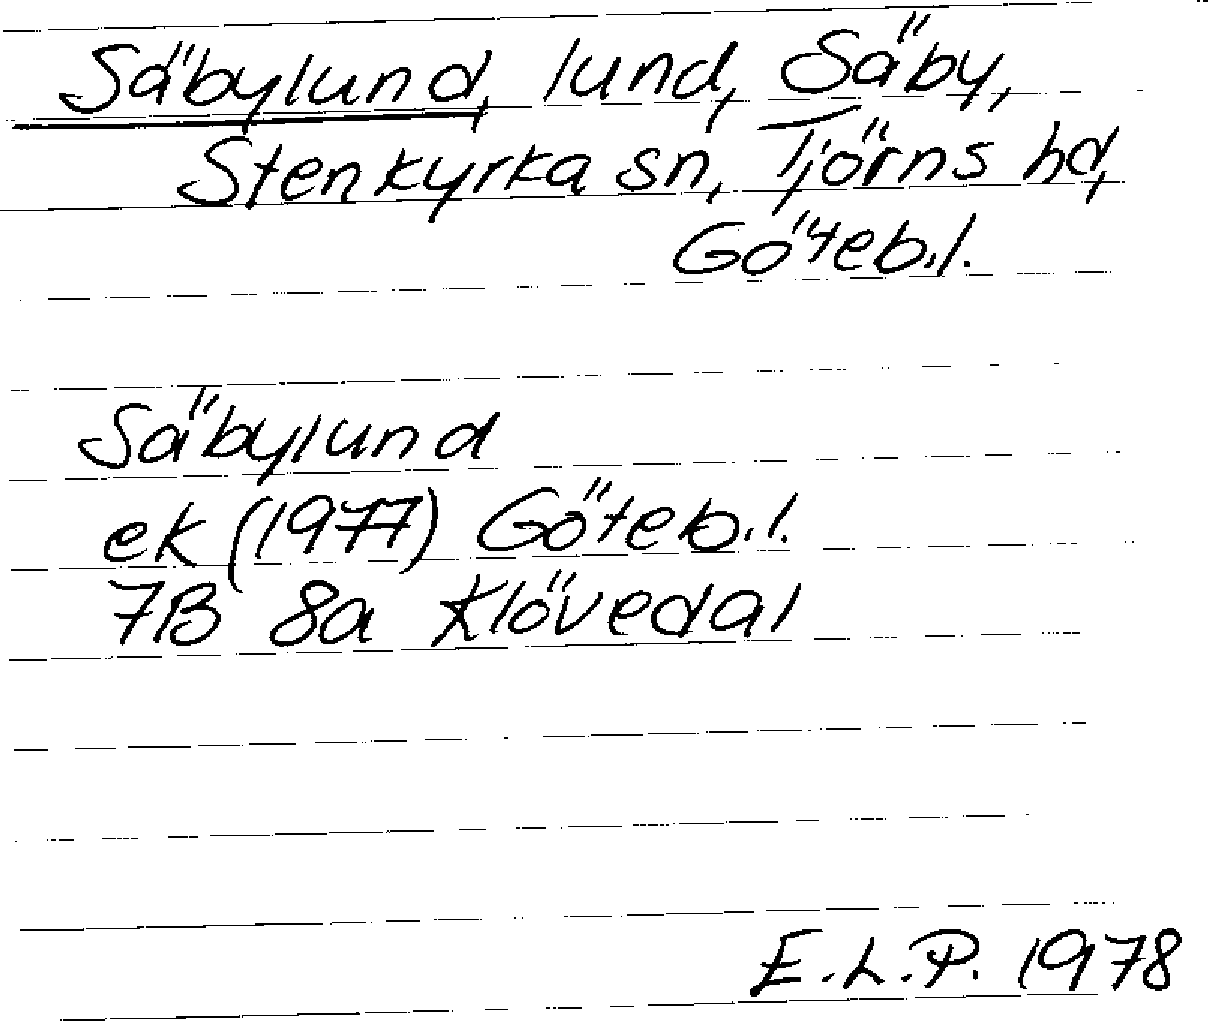 Säbylund, lund, Säby,
Stenkyrka sn, Tjörns hd,
Göteb.l.
Säbylund
ek (1977) Göteb.l.
7B 8a Klövedal
E.L.P. 1978